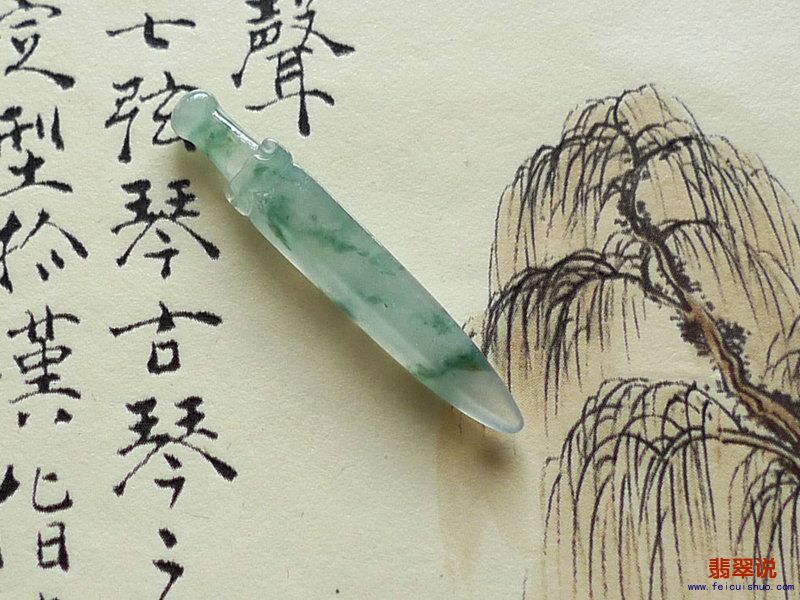 聲
七弦琴古琴之
定型於漢
翡翠说
www.feicuishuo.com